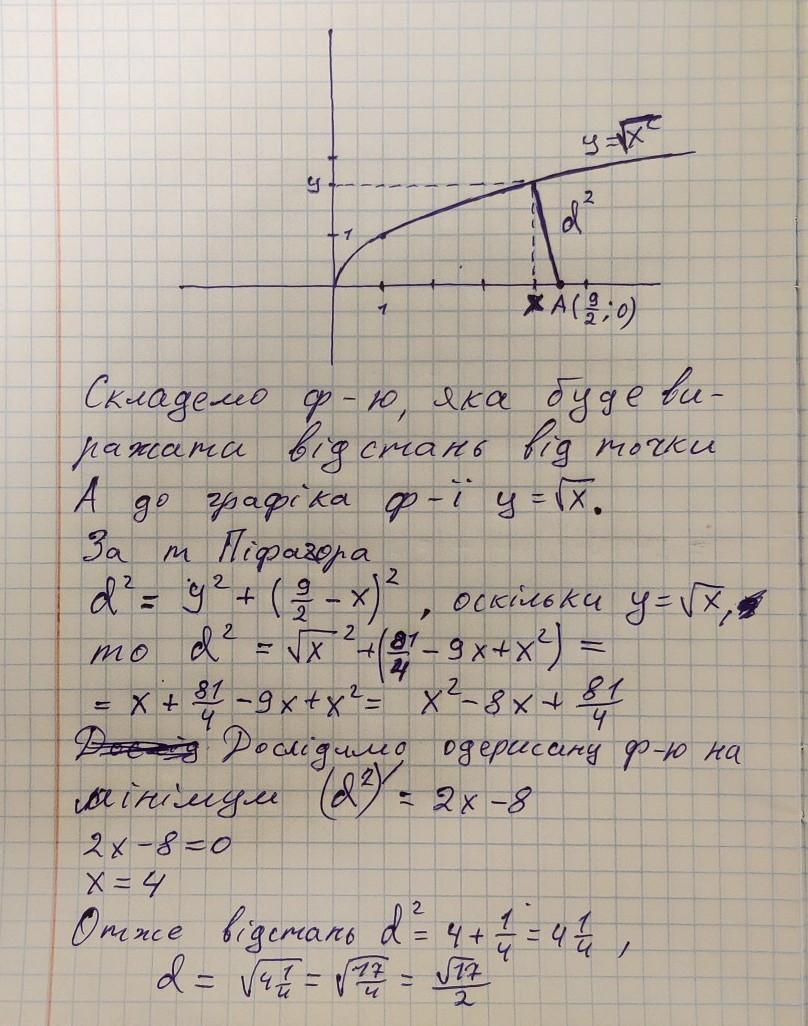 y = √x²
y
d²
1
1
x A(9/2; 0)
Складемо ф-ю, яка буде ви-
ражати відстань від точки
А до графіка ф-ії y = √x.
За т Піфагора
d² = y² + (9/2 - x)², оскільки y = √x,
то d² = √x² + (81/4 - 9x + x²) =
= x + 81/4 - 9x + x² = x² - 8x + 81/4
Дослідимо одержану ф-ю на
мінімум (d²)′ = 2x - 8
2x - 8 = 0
x = 4
Отже відстань d² = 4 + 1/4 = 4 1/4,
d = √4 1/4 = √17/4 = √17/2